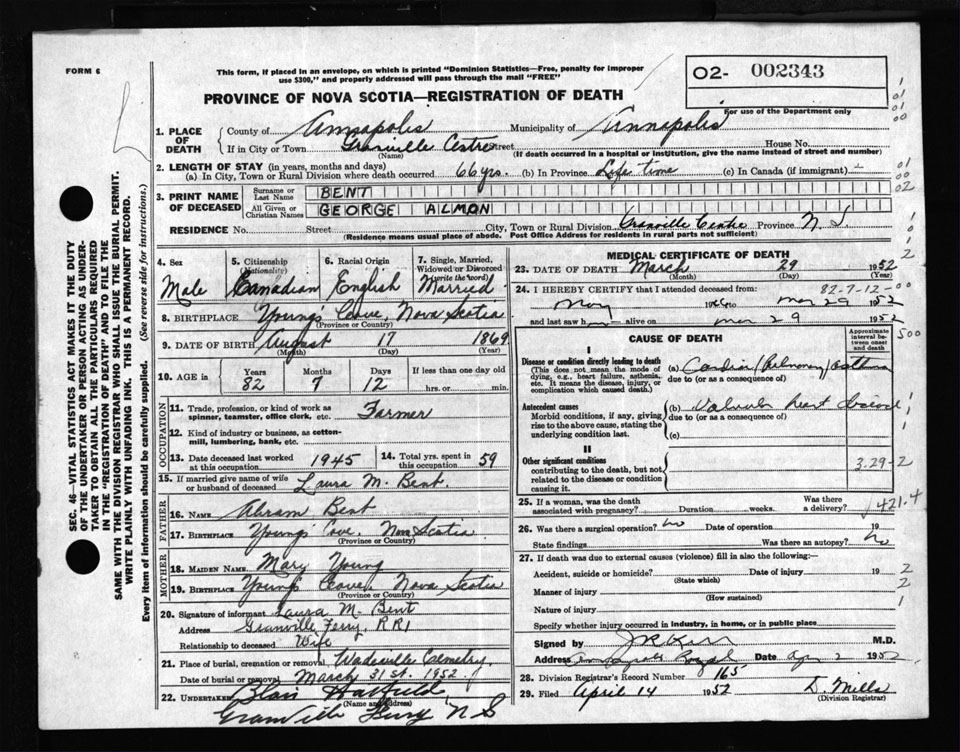 FORM 6
This form, if placed in an envelope, on which is printed "Dominion Statistics—Free, penalty for improper
use $300," and properly addressed will pass through the mail "FREE"
PROVINCE OF NOVA SCOTIA—REGISTRATION OF DEATH
O2- 002343
For use of the Department only
1. PLACE OF DEATH
County of Annapolis Municipality of Annapolis
If in City or Town Granville Centre Street House No.
(Name) (If death occurred in a hospital or institution, give the name instead of street and number)
2. LENGTH OF STAY (in years, months and days)
(a) In City, Town or Rural Division where death occurred 66 yrs. (b) In Province Life time (c) In Canada (if immigrant)
3. PRINT NAME OF DECEASED
Surname or Last Name BENT
All Given or Christian Names GEORGE ALMON
RESIDENCE No. Street City, Town or Rural Division Granville Centre Province N S.
(Residence means usual place of abode. Post Office Address for residents in rural parts not sufficient)
4. Sex
Male
5. Citizenship
(Nationality)
Canadian
6. Racial Origin
English
7. Single, Married, Widowed or Divorced
(write the word)
Married
8. BIRTHPLACE Young's Cove, Nova Scotia
(Province or Country)
9. DATE OF BIRTH August 17 1869
(Month) (Day) (Year)
10. AGE in Years Months Days If less than one day old
82 7 12 hrs. or min.
OCCUPATION
11. Trade, profession, or kind of work as
spinner, teamster, office clerk, etc. Farmer
12. Kind of industry or business, as cotton-
mill, lumbering, bank, etc.
13. Date deceased last worked
at this occupation 1945
14. Total yrs. spent in
this occupation 59
15. If married give name of wife
or husband of deceased Laura M. Bent.
FATHER
16. NAME Abram Bent
17. BIRTHPLACE Young's Cove, Nova Scotia
(Province or Country)
MOTHER
18. MAIDEN NAME Mary Young
19. BIRTHPLACE Young's Cove, Nova Scotia
(Province or Country)
20. Signature of informant Laura M. Bent
Address Granville Ferry, R R 1
Relationship to deceased Wife
21. Place of burial, cremation or removal Wadeville Cemetry
Date of burial or removal March 31st. 1952.
22. UNDERTAKER Blair Hatfield
(Name and Address)
Granville Ferry N S
MEDICAL CERTIFICATE OF DEATH
23. DATE OF DEATH March 29 1952
(Month) (Day)
24. I HEREBY CERTIFY that I attended deceased from: 82-7-12-
Nov 19 to Mar 29 1952
and last saw h alive on Mar 29 1952
CAUSE OF DEATH
Approximate interval between onset and death
I
Disease or condition directly leading to death
(This does not mean the mode of
dying, e.g., heart failure, asthenia,
etc. It means the disease, injury, or
complication which caused death.)
(a)
due to (or as a consequence of)
Antecedent causes
Morbid conditions, if any, giving
rise to the above cause, stating the
underlying condition last.
(b) Valvular heart disease
due to (or as a consequence of)
(c)
II
Other significant conditions
contributing to the death, but not
related to the disease or condition
causing it.
3.29-2
25. If a woman, was the death Was there
associated with pregnancy? Duration weeks. a delivery? 421.4
26. Was there a surgical operation? no Date of operation 19
State findings Was there an autopsy? no
27. If death was due to external causes (violence) fill in also the following:—
Accident, suicide or homicide? Date of injury 19
(State which)
Manner of injury
(How sustained)
Nature of injury
Specify whether injury occurred in industry, in home, or in public place
Signed by J R Kerr M.D.
Address Annapolis Royal Date Apr 2 1952
28. Division Registrar's Record Number 165
29. Filed April 14 1952 D. Mills
(Division Registrar)
SEC. 46—VITAL STATISTICS ACT MAKES IT THE DUTY
OF THE UNDERTAKER OR PERSON ACTING AS UNDER-
TAKER TO OBTAIN ALL THE PARTICULARS REQUIRED
IN THE "REGISTRATION OF DEATH" AND TO FILE THE
SAME WITH THE DIVISION REGISTRAR WHO SHALL ISSUE THE BURIAL PERMIT.
WRITE PLAINLY WITH UNFADING INK. THIS IS A PERMANENT RECORD.
Every item of information should be carefully supplied. (See reverse side for instructions.)